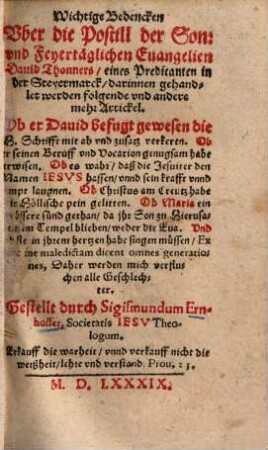 Wichtige Bedencken
Vber die Postill der Son:
vnd Feyertäglichen Euangelien
Dauid Thonners / eines Predicanten in
der Steyermarck / darinnen gehand-
let werden folgende vnd anders
mehr Artickel.
Ob er Dauid befugt gewesen die
H. Schrifft mit ab vnd zusatz verkeren. Ob
er seinen Beruff vnd Vocation genugsam habe
erwisen. Ob es wahr / daß die Jesuiter den
Namen IESVS hassen / vnnd sein krafft vnnd
laugnen. Ob Christus am Creutz habe
Höllische pein gelitten. Ob Maria ein
össere sünd gethan / da jhr Son zu Hierusa-
im Tempel blieben / weder die Eua. Vnd
in jhrem hertzen habe singen müssen / Ex
me maledictam dicent omnes generatio
nes, Daher werden mich verfluchen
chen alle Geschlech-
ter.
Gestellt durch Sigismundum Ern-
hoffer, Societatis IESV Theo-
logum.
Erkauff die warheit / vnnd verkauff nicht die
weißheit / lehre vnd verstand. Prou. 23.
M. D. LXXXIX.